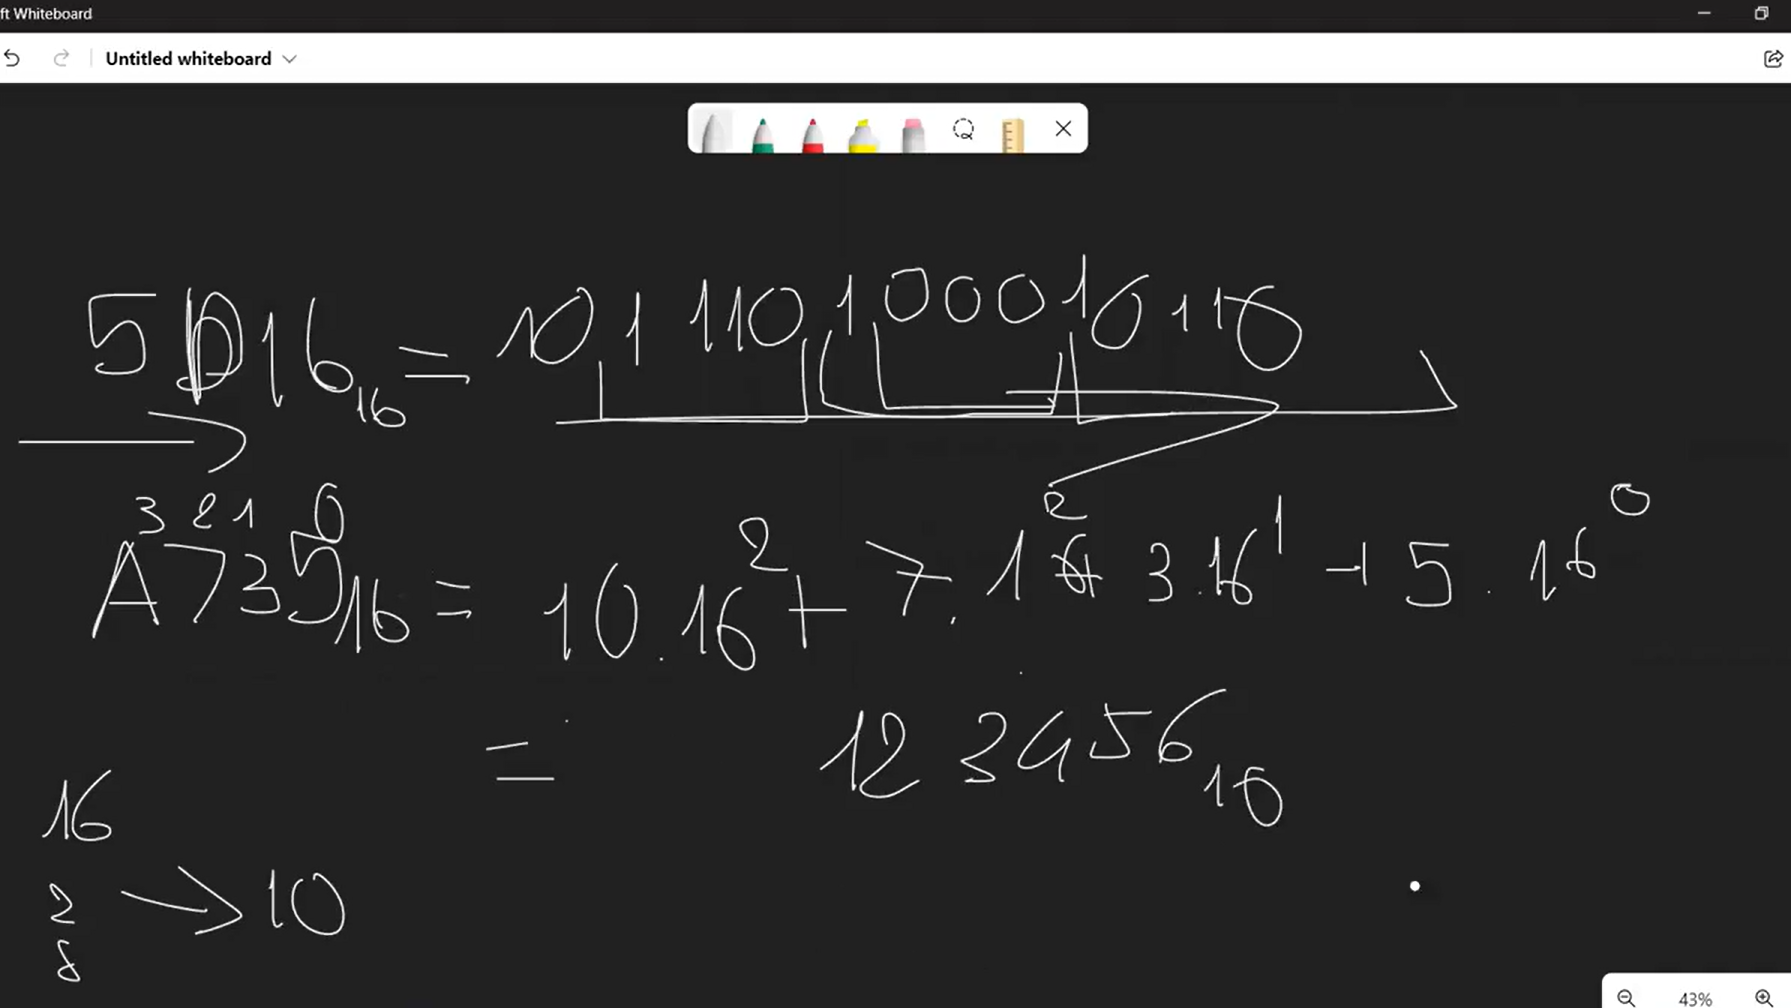 ft Whiteboard
Untitled whiteboard
5D16₁₆ = 101110100010110
3 2 1 0
A735₁₆ = 10.16² + 7.16² + 3.16¹ + 5.16⁰
= 123456₁₀
16
2 → 10
8
43%